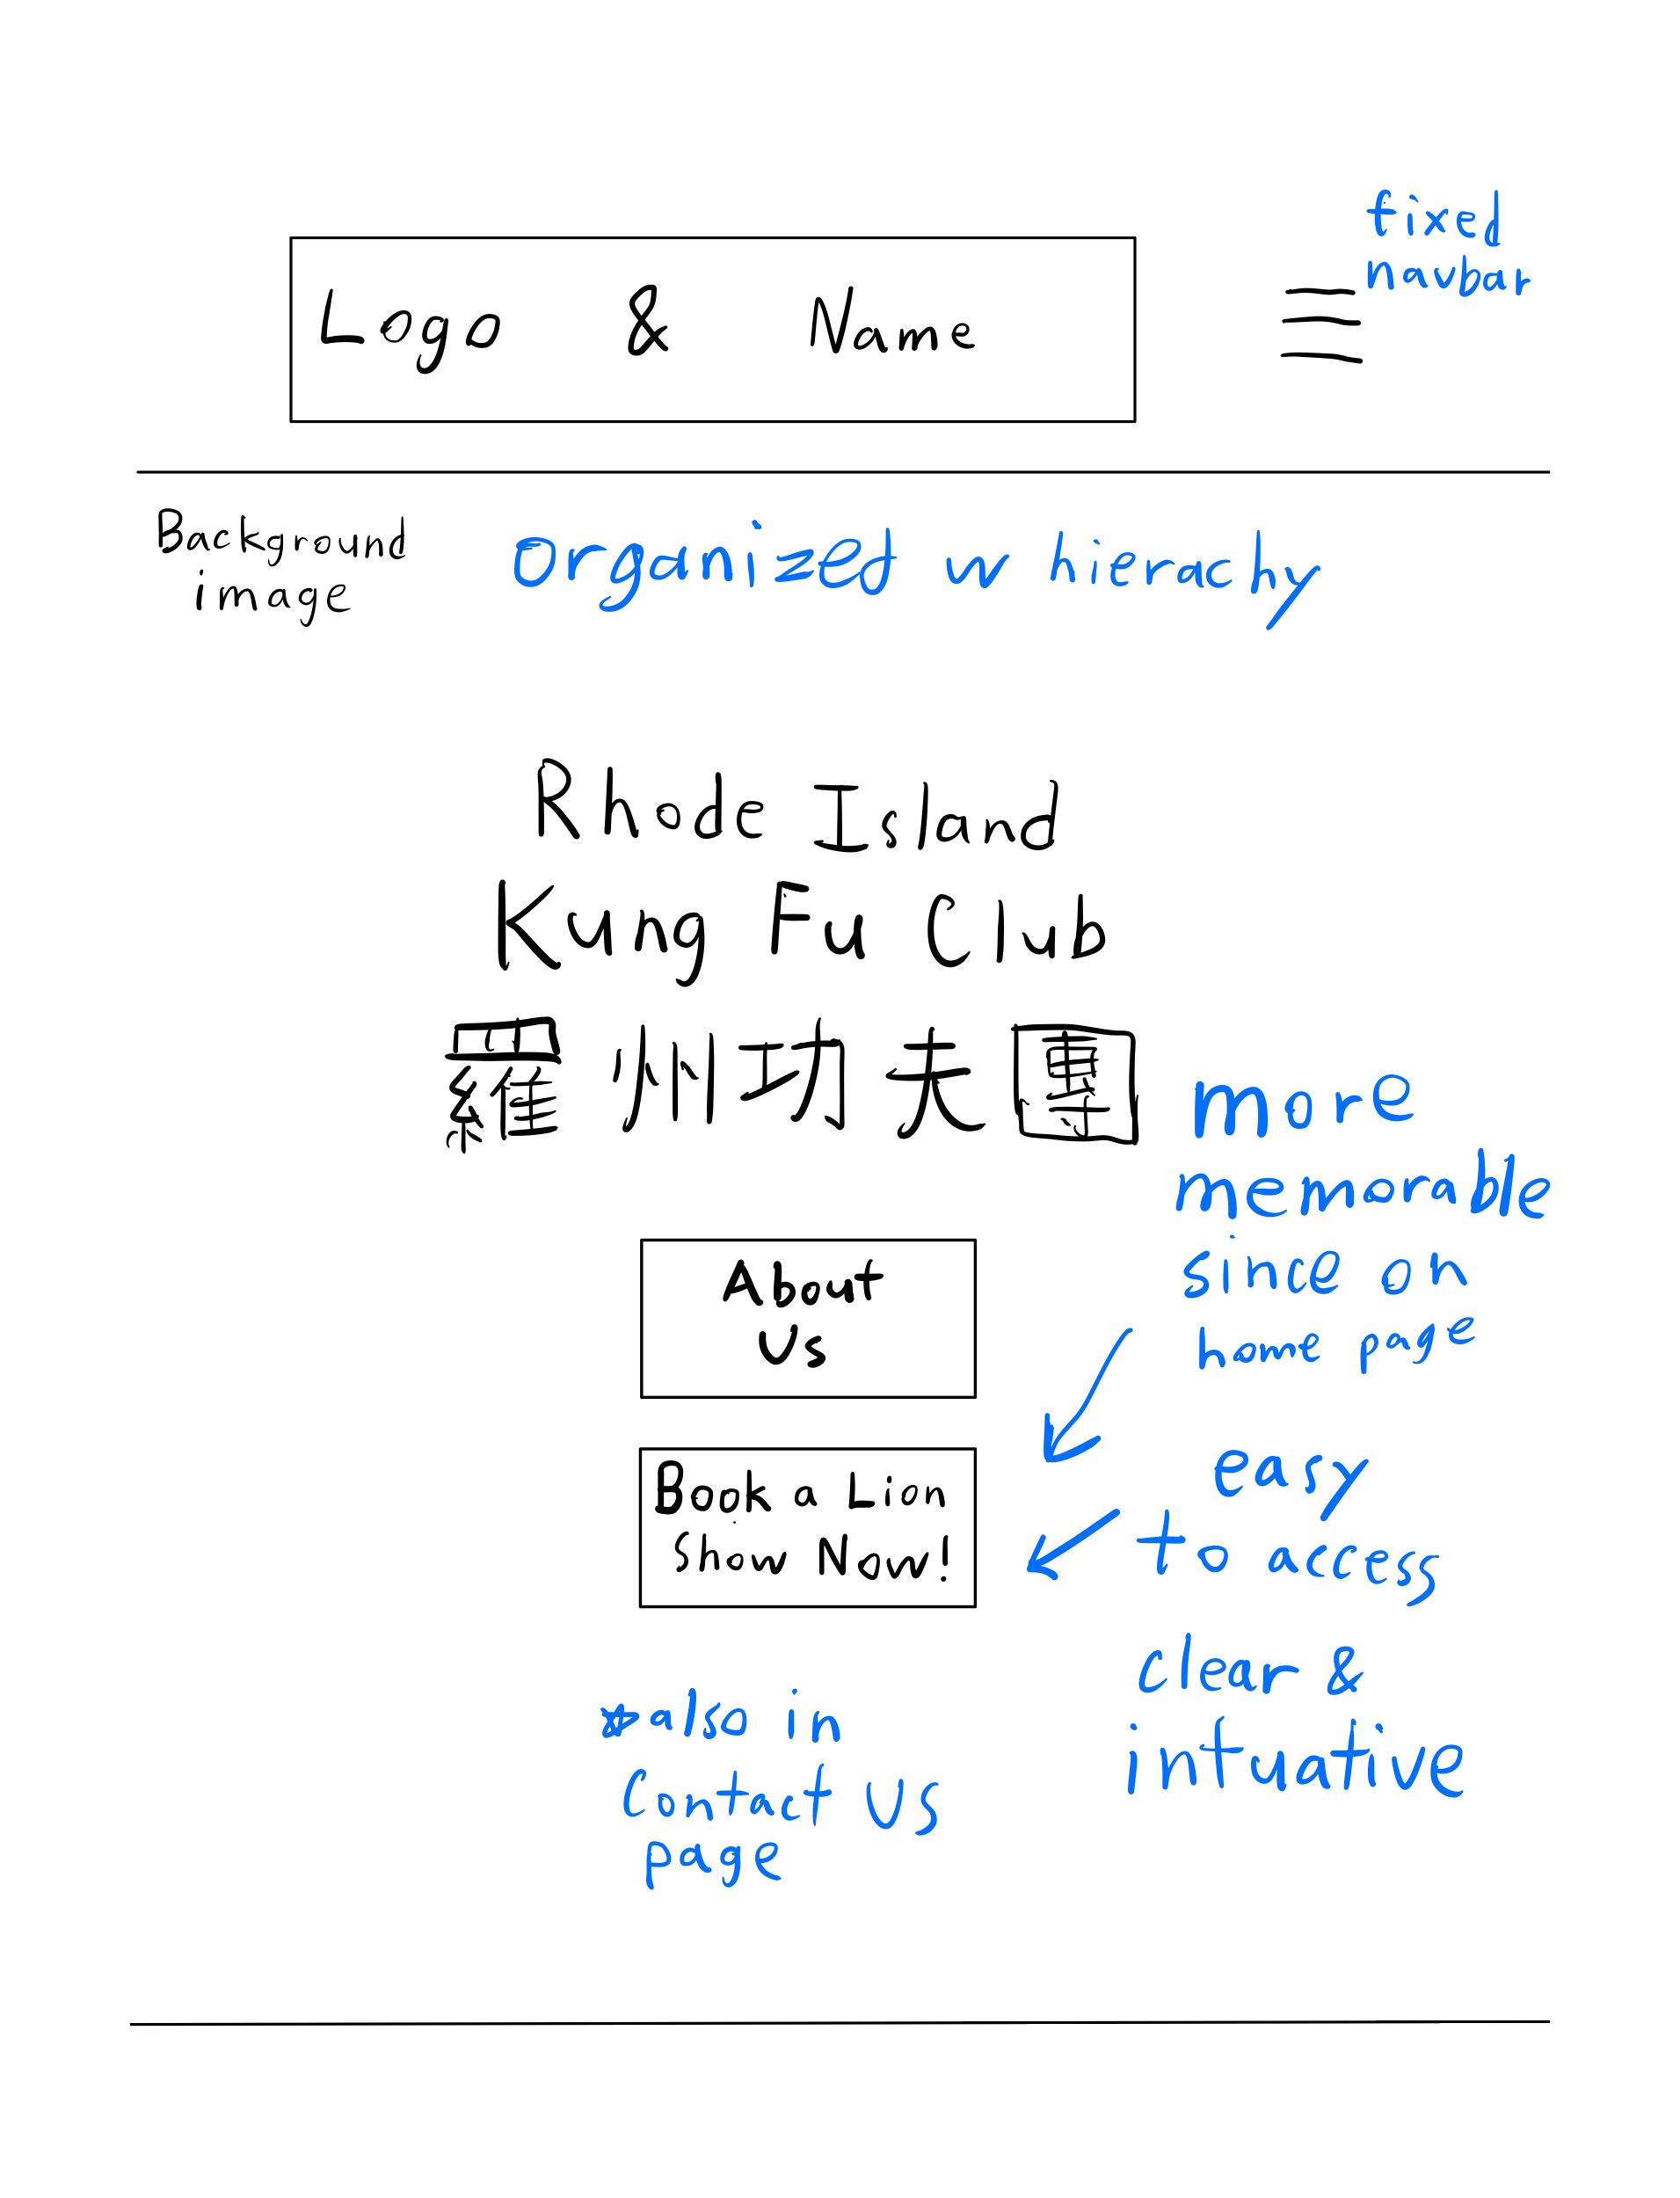 fixed
navbar
Logo & Name
Background
image
organized w hierachy
Rhode Island
Kung Fu Club
羅州功夫團
more
memorable
since on
home page
About
Us
Book a Lion
Show Now!
easy
to access
clear &
intuative
*also in
Contact Us
page